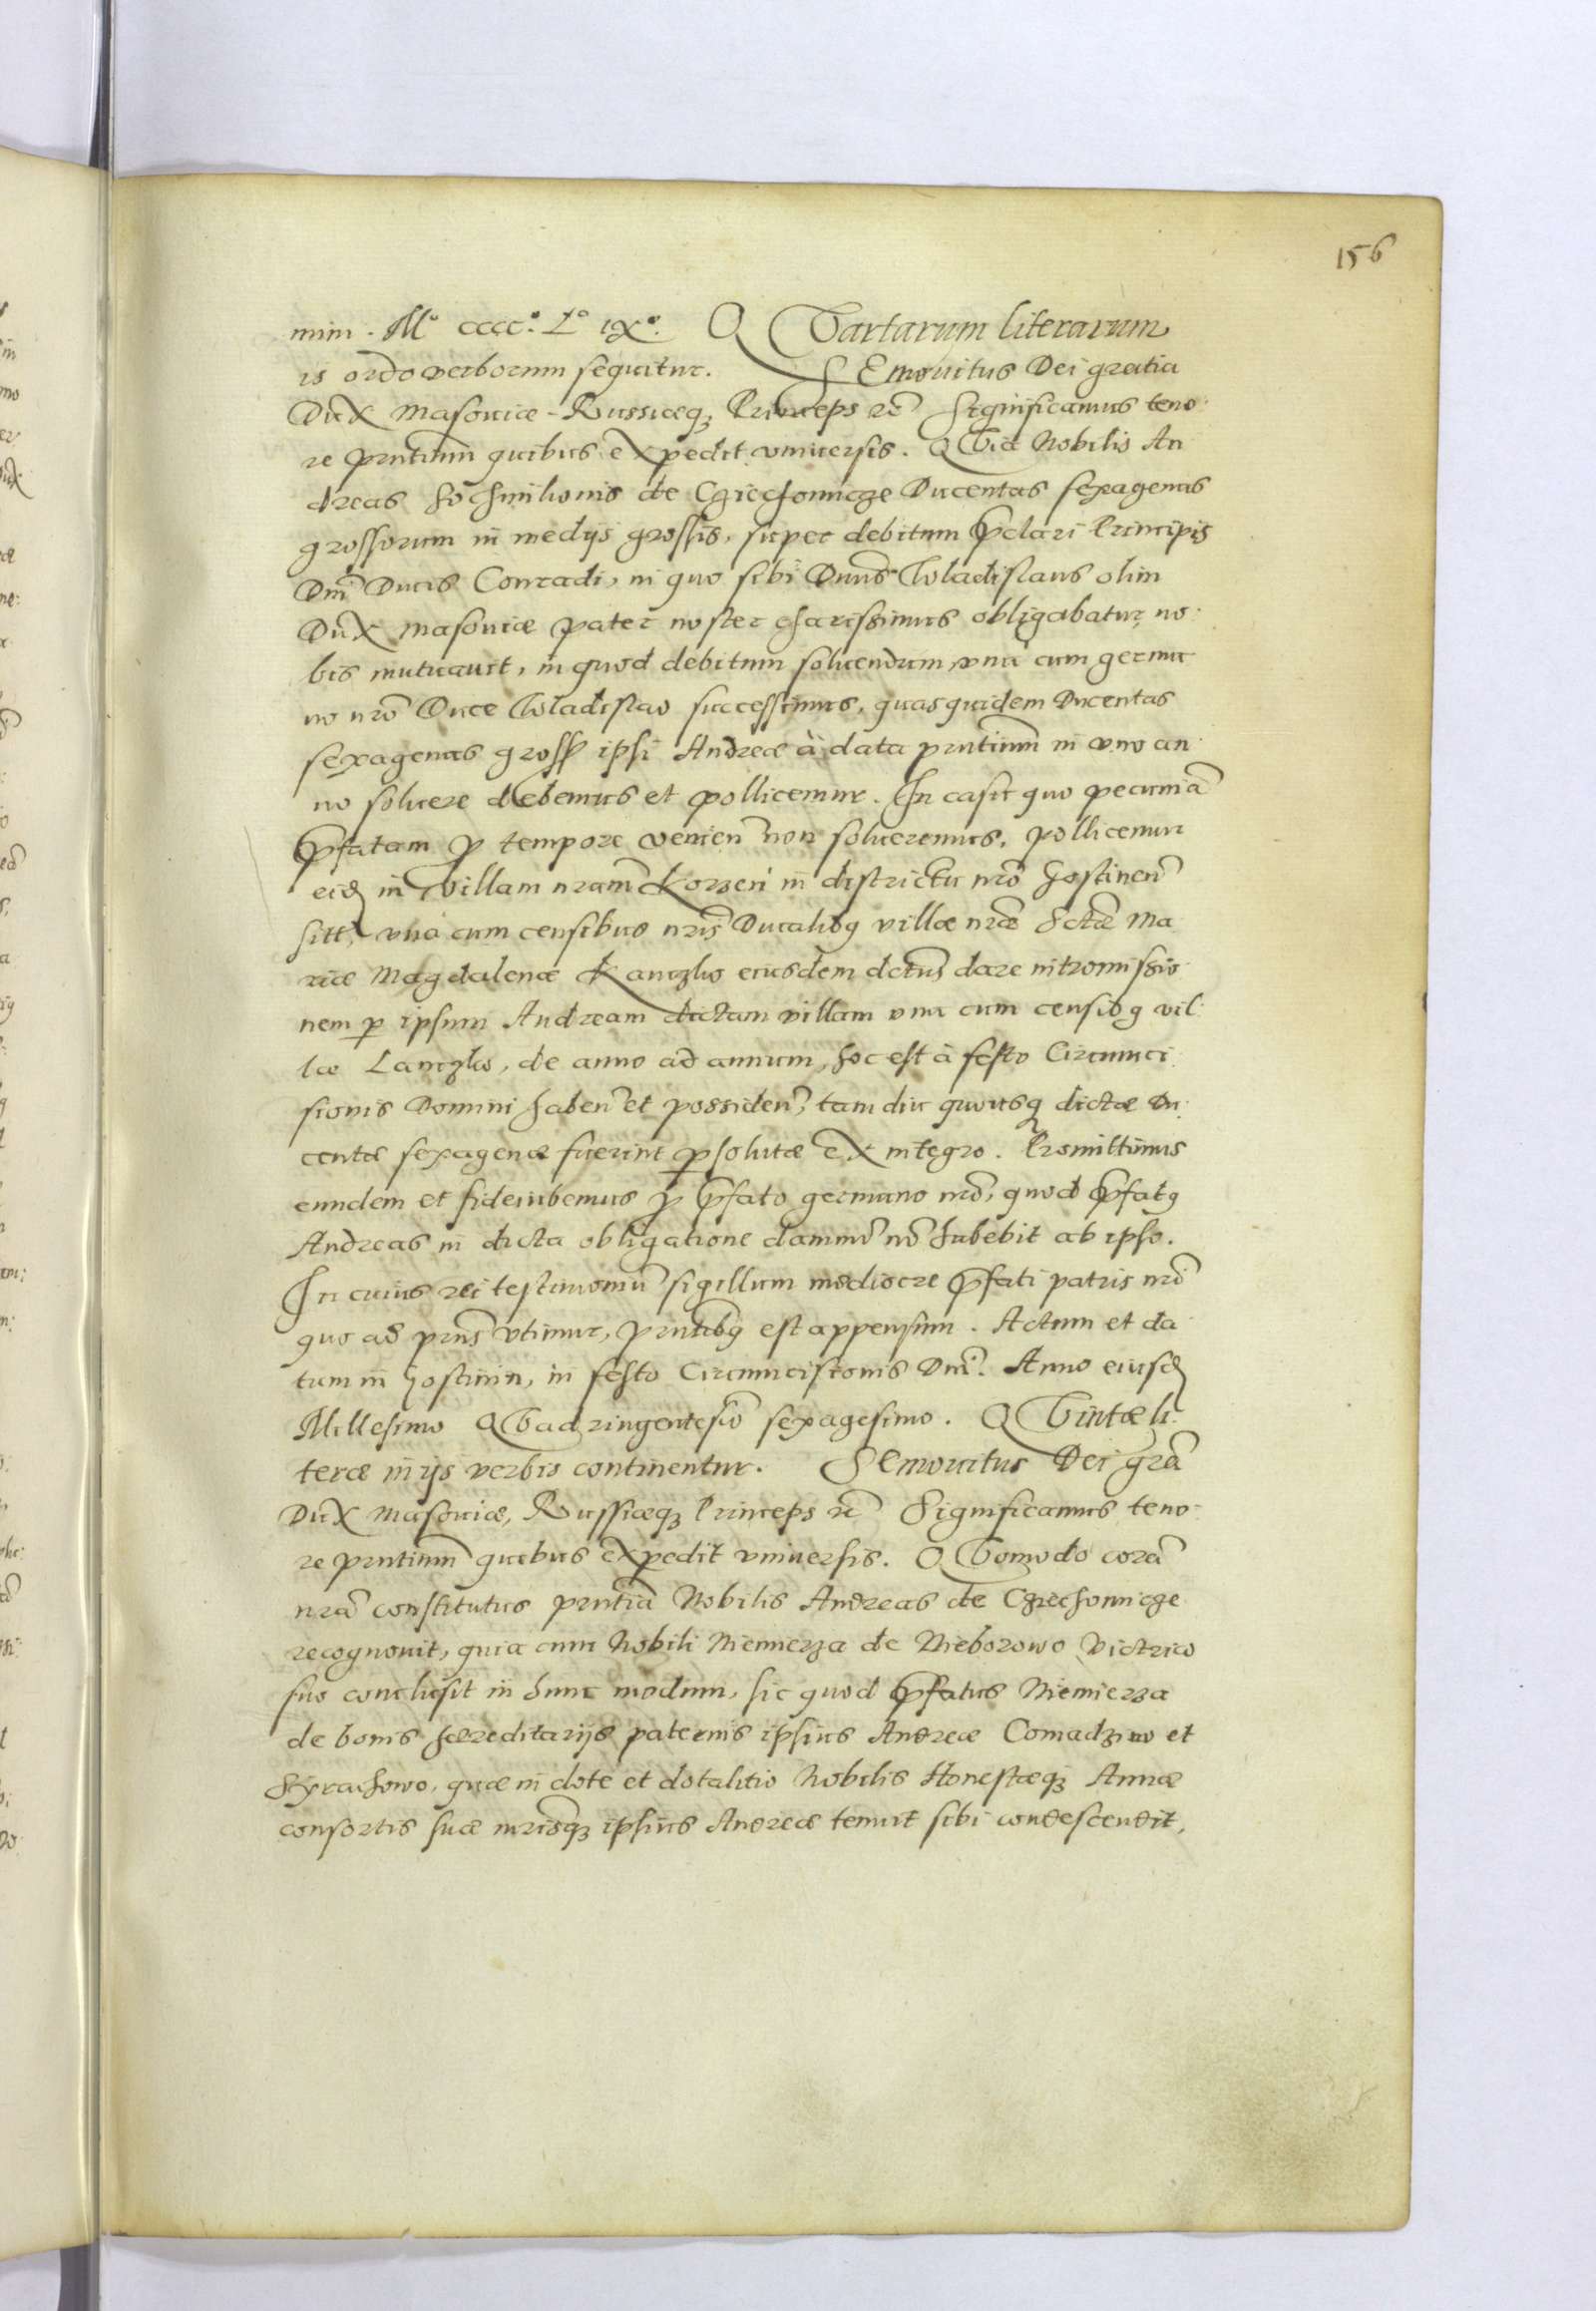 156
mini. Mº ccccº. Lº ixº. Quartarum literarum
is ordo verborum sequitur. Semouitus Dei gratia
Dux Masouiæ Russiæq3 Princeps rc̃ Significamus teno:
re pñtium̃ quibus expedit vniuersis. Quia Nobilis An
dreas Hochmilionis de Cziechomicze Ducentas sexagenas
grossorum in medijs grossis, super debitum p̃clari Principis
Dñi Ducis Conradi, in quo sibi Dñus Wladislaus olim
Dux Masouiæ pater noster charissimus obligabatur, no:
bis mutuauit, in quod debitum soluendum vna cum germa
no nrõ Duce Wladislao successimus, quas quidem Ducentas
sexagenas gross ipsi Andreæ à data pñtium̃ in vno an
no soluere debemus et pollicemur. In casu quo pecuniã
p̃fatam p tempore venien̄ non solueremus, pollicemur
eid in villam nram̃ Korzen in districtu nrõ Gostinen̄
sitt, vna cum censibus nris̃ Ducalibꝰ villæ nræ̃ Sctæ̃ Ma
riæ Magdalenæ Lanczlio eiusdem dc̃tus dare intromissio
nem p ipsum Andream dictam villam vna cum censibꝰ vil
læ Lanczlio, de anno ad annum, hoc est à festo Circumci
sionis Domini haben̄ et possiden̄, tam diu quousq dictæ Du
centæ sexagenæ fuerint psolutæ ex integro. Promittimus
eundem et fideiubemus p p̃fato germano nrõ, quod p̃fatꝰ
Andreas in dicta obligatione damnũ nõ habebit ab ipso.
In cuius rei testimoniũ sigillum mediocre p̃fati patris nri̇̃
quo ad pñs vtimur, pñtibꝰ est appensum. Actum et da
tum in Gostinin, in festo Circumcisionis Dñi. Anno eiusd
Millesimo Quadringentesiõ sexagesimo. Quintæ li:
teræ in ijs verbis continentur. Semouitus Dei grã
Dux Masouiæ, Russiæq3 Princeps rc̃ Significamus teno:
re pñtium̃ quibus expedit vniuersis. Quomodo corã
nrã constitutus pñtiã Nobilis Andreas de Cziechomicze
recognouit, quia cum Nobili Niemierza de Nieborowo Victrico
suo conclusit in hunc modum, sic quod p̃fatus Niemierza
de bonis hæreditarijs paternis ipsius Andreæ Comadzino et
Syrachowo, quæ in dote et dotalitio Nobilis Honestæq3 Annæ
consortis suæ mrisq̃3 ipsius Andreæ tenuit sibi condescendit,